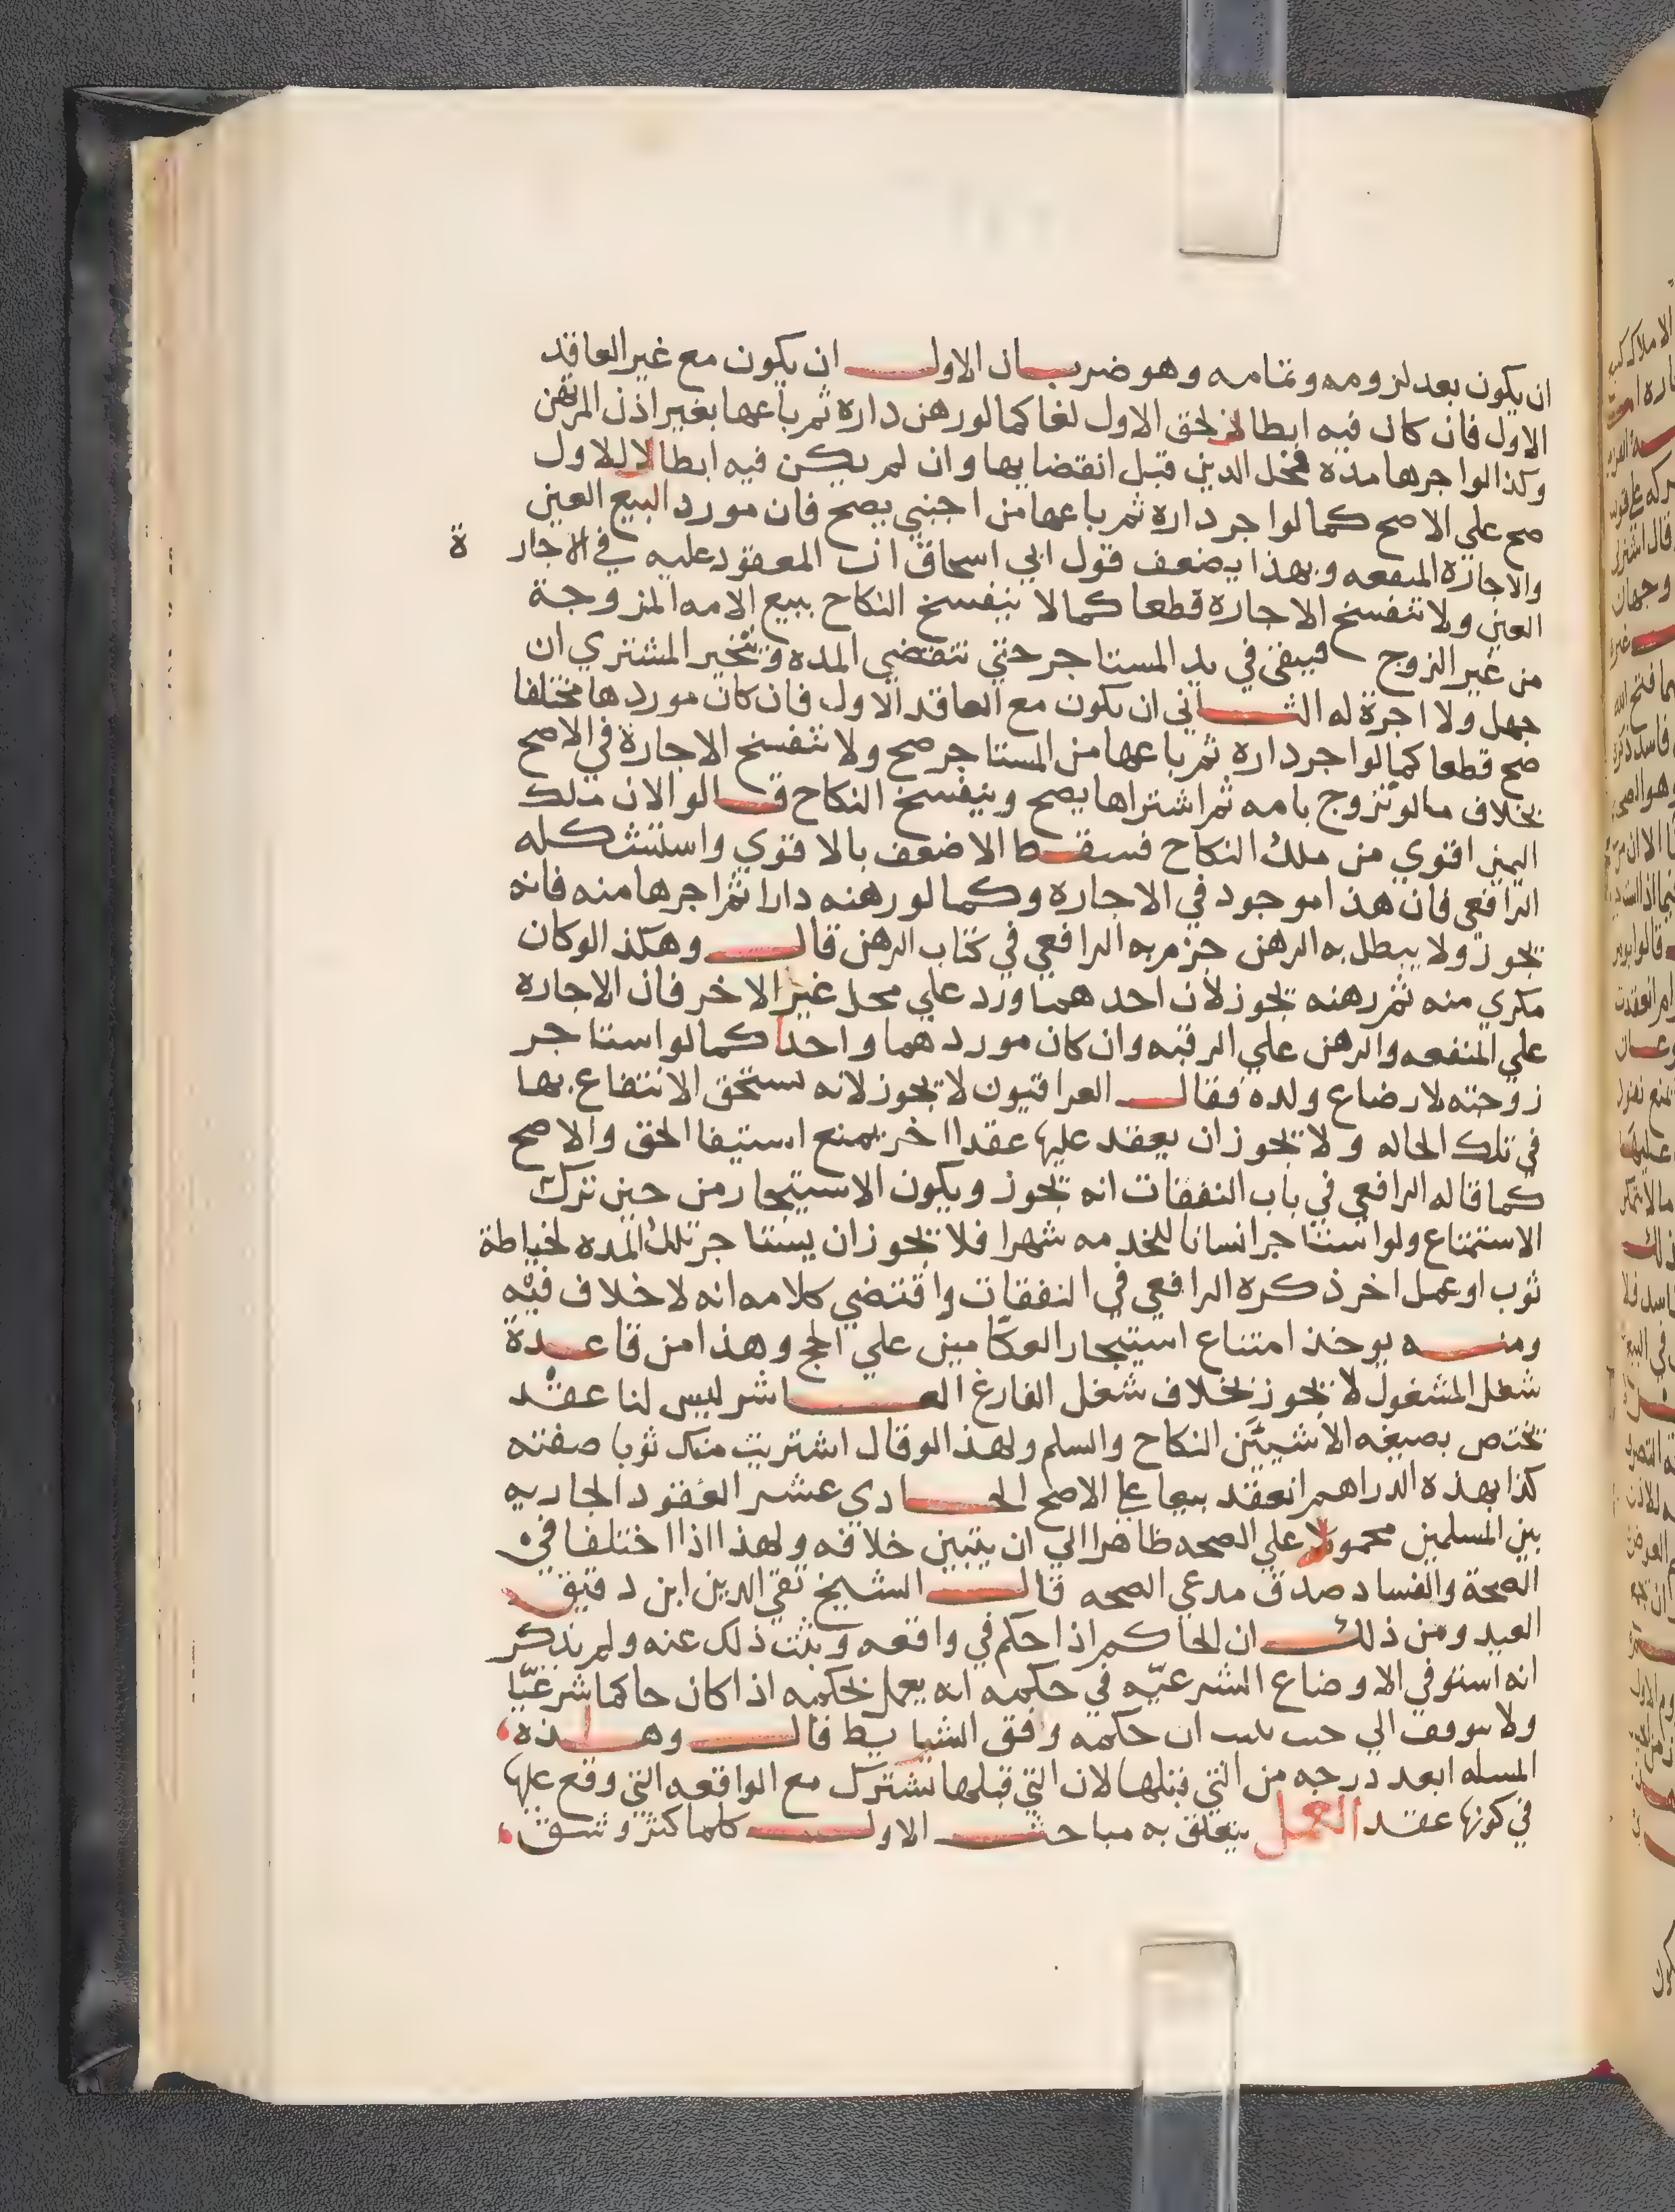 ان يكون بعد لزومه وتمامه وهو ضربان الاول ان يكون مع غير العاقد
الاول فان كان فيه ابطال لحق الاول لغا كما لو رهن داره ثم باعها بغير اذن المرتهن
وكذا لو اجرها مدة محل الدين قبل انقضايها وان لم يكن فيه ابطالا للاول
صح علي الاصح كما لو اجر داره ثم باعها من اجنبي يصح فان مورد البيع العين
والاجارة المنفعه وبهذا يضعف قول ابي اسحاق ان المعقود عليه في الاجارة
العين ولا تنفسخ الاجارة قطعا كما لا ينفسخ النكاح ببيع الامه المزوجة
من غير الزوج فيبقى في يد المستاجر حتي تنقضي المده ويتخير المشتري ان
جهل ولا اجرة له الثاني ان يكون مع العاقد الاول فان كان موردها مختلفا
صح قطعا كما لو اجر داره ثم باعها من المستاجر صح ولا تنفسخ الاجارة في الاصح
بخلاف ما لو تزوج بامه ثم اشتراها يصح وينفسخ النكاح قالوا لان ملك
اليمين اقوي من ملك النكاح فسقط الاضعف بالاقوي واستشكله
الرافعي فان هذا موجود في الاجاره وكما لو رهنه دارا ثم اجرها منه فانه
يجوز ولا يبطل به الرهن جزم به الرافعي في كتاب الرهن قال وهكذا لو كان
مكري منه ثم رهنه يجوز لان احدهما ورد علي محل غير الاخر فان الاجاره
علي المنفعه والرهن علي الرقبه وان كان موردهما واحدا كما لو استاجر
زوجته لارضاع ولده فقال العراقيون لا يجوز لانه يستحق الانتفاع بها
في تلك الحاله ولا يجوز ان يعقد عليها عقدا اخر يمنع استيفا الحق والاصح
كما قاله الرافعي في باب النفقات انه يجوز ويكون الاستيجار من حين ترك
الاستمتاع ولو استاجر انسانا للخدمه شهرا فلا يجوز ان يستاجر تلك المده لخياطة
ثوب او عمل اخر ذكره الرافعي في النفقات واقتضي كلامه انه لا خلاف فيه
ومنه يوخذ امتناع استيجار العكامين علي الحج وهذا من قاعدة
شغل المشغول لا يجوز بخلاف شغل الفارغ العاشر ليس لنا عقد
يختص بصيغه الا شيئين النكاح والسلم ولهذا لو قال اشتريت منك ثوبا صفته
كذا بهذه الدراهم انعقد بيعا علي الاصح الحادي عشر العقود الجاريه
بين المسلمين محمولا علي الصحه ظاهرا الي ان يتبين خلافه ولهذا اذا اختلفا في
الصحة والفساد صدق مدعي الصحه قال الشيخ تقي الدين ابن دقيق
العيد ومن ذلك ان الحاكم اذا حكم في واقعه وثبت ذلك عنه ولم يذكر
انه استوفي الاوضاع الشرعيه في حكمه انه يعمل بحكمه اذا كان حاكما شرعيا
ولا يتوقف الي حين يثبت ان حكمه وافق الشرايط قال وهذه
المسله ابعد درجه من التي قبلها لان التي قبلها تشترك مع الواقعه التي وقع عليها
في كونها عقد العمل يتعلق به مباحث الاول كلما كثر وشق